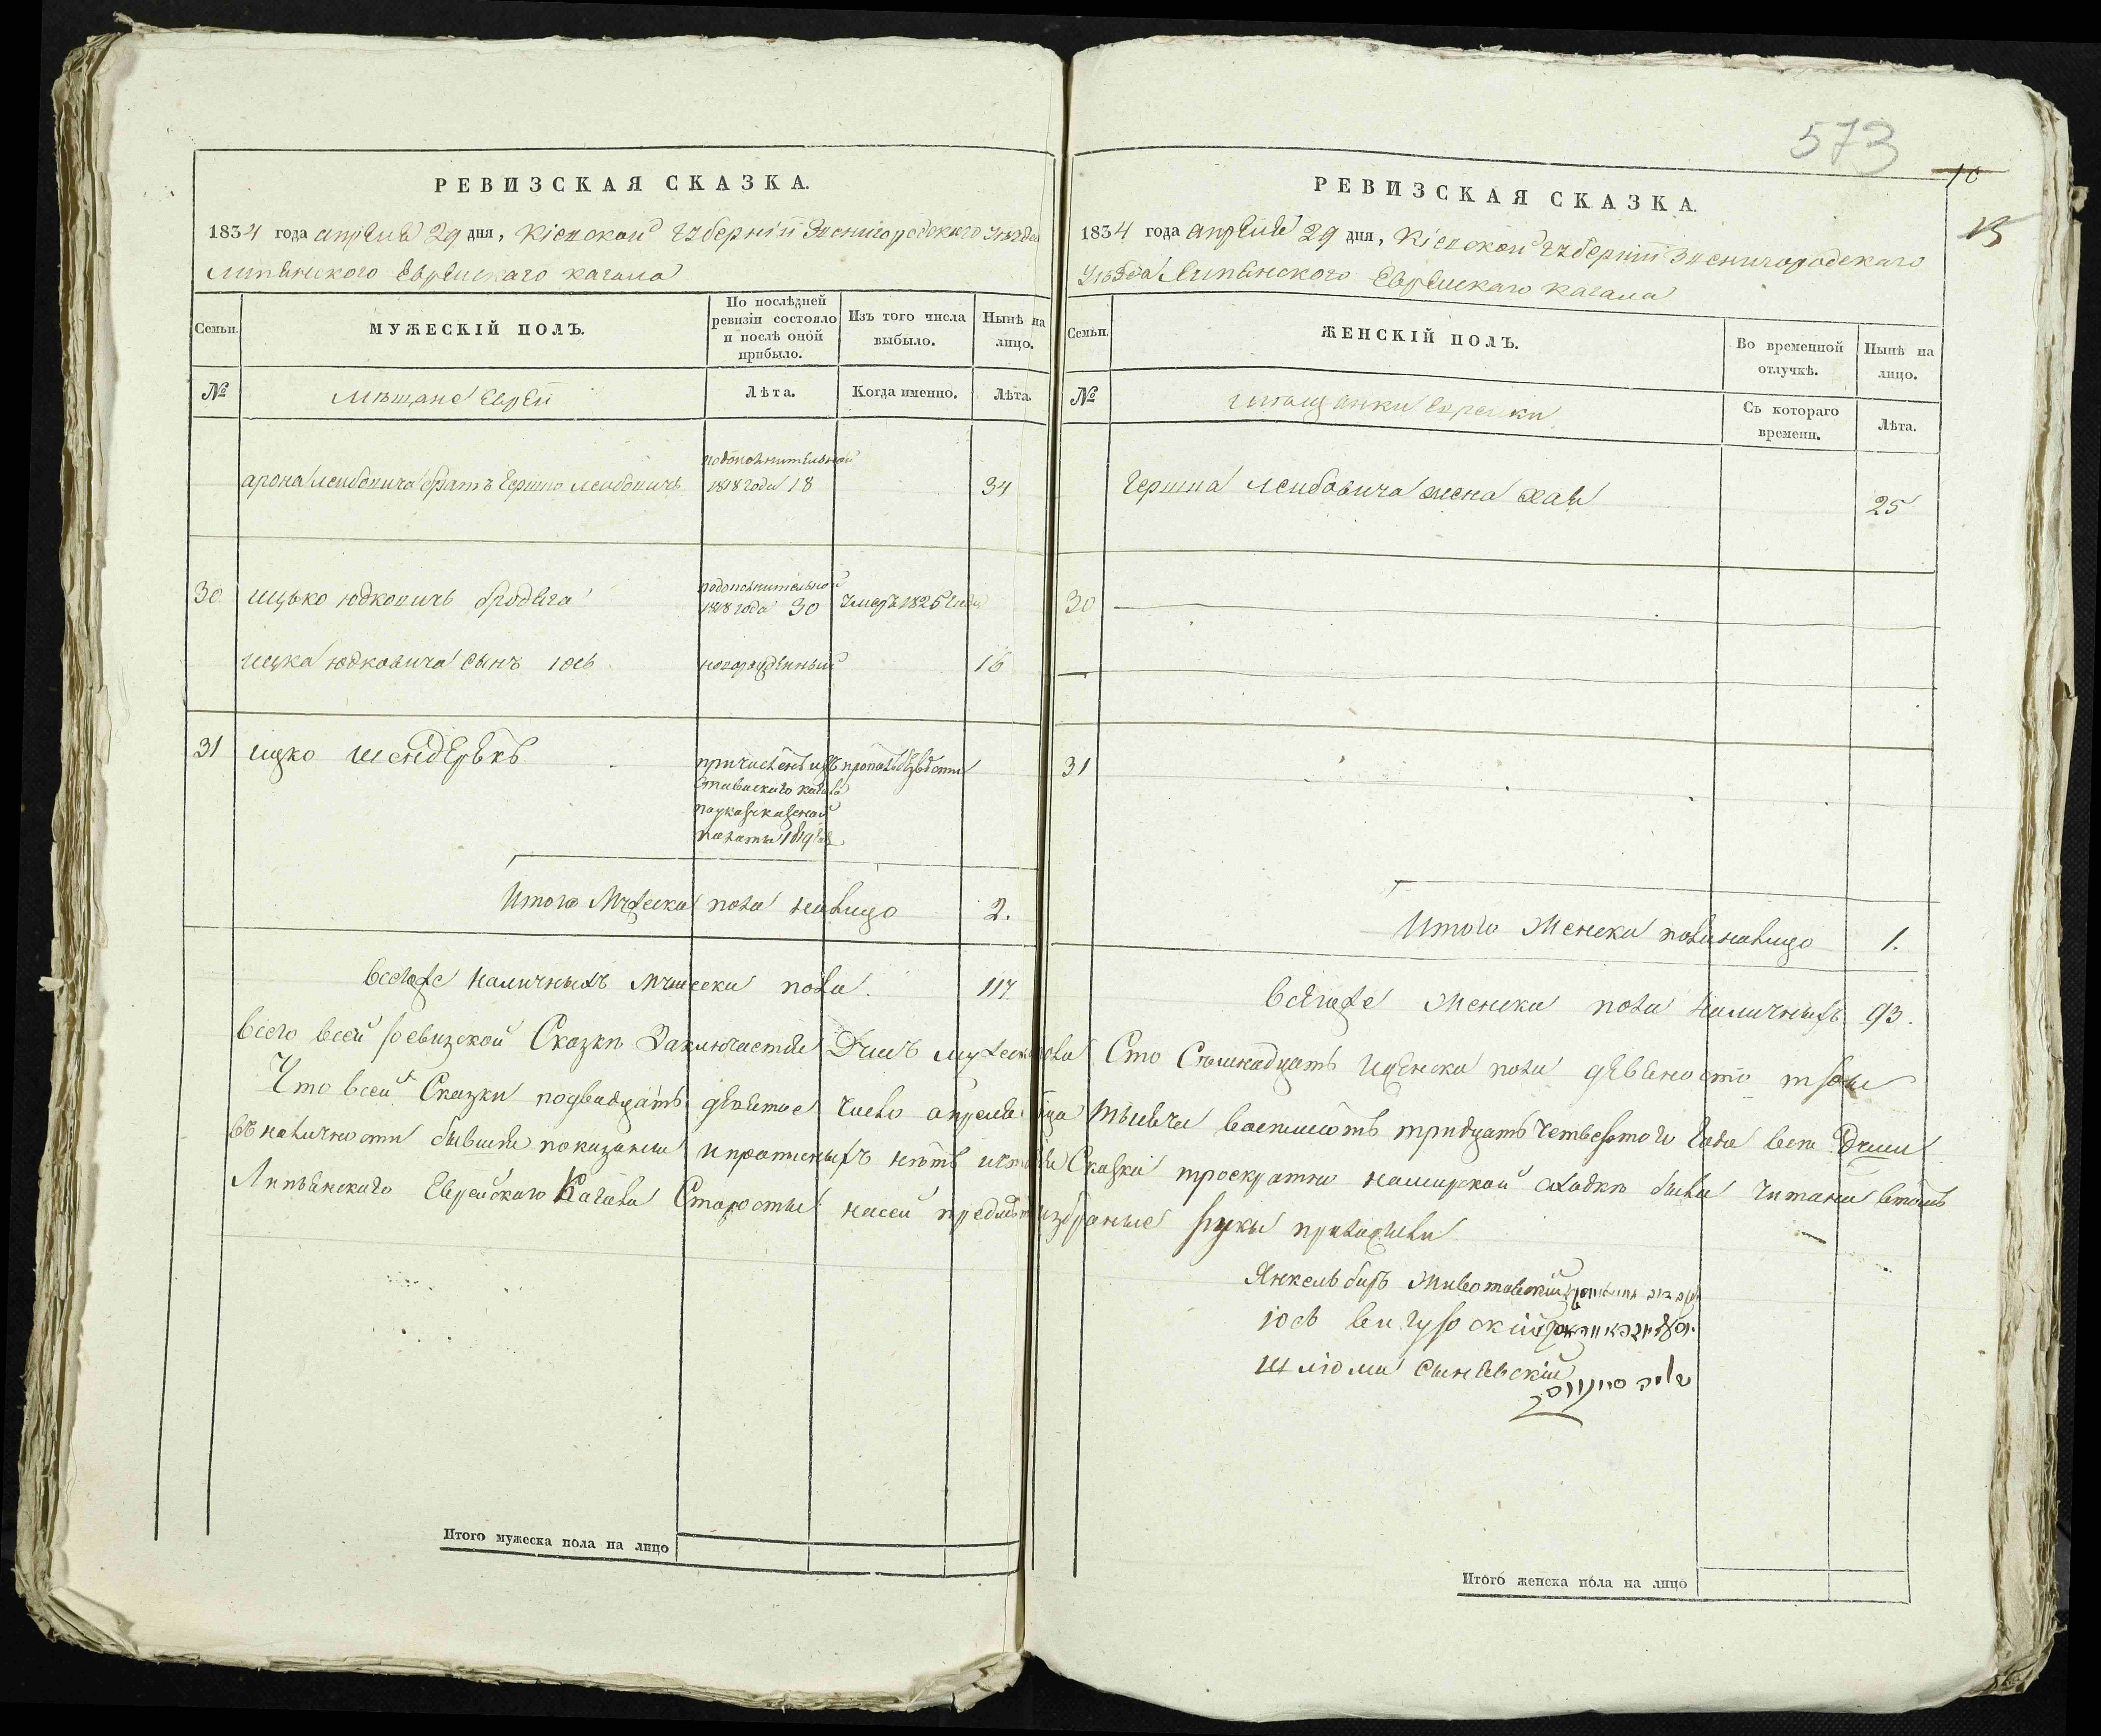 573
РЕВИЗСКАЯ СКАЗКА.
1834 года апреля 29 дня, Кіевской губерніи Звенигородского уезда
Липянского Еврейскаго кагала
Семьи.
МУЖЕСКІЙ ПОЛЪ.
По послѣдней ревизіи состояло и послѣ оной прибыло.
Изъ того числа выбыло.
Нынѣ на лицо.
№
Мѣщане Евреи
Лѣта.
Когда именно.
Лѣта.
арона лейбовича братъ Гершко лейбовичъ
подополнительной 1818 года 18
34
30 ицько юдковичъ бродяга
подополнительной 1818 года 30
умеръ 1825 года
ицка юдковича сынъ іось
новорожденный
16
31 ицко шендерекъ
причисленъ изъ
кагала
палаты 1819
пропалъ безвѣсти
Итого Мужеска пола налицо 2.
всегоже наличныхъ Мужеска пола. 117.
РЕВИЗСКАЯ СКАЗКА.
15
1834 года апреля 29 дня, Кіевской губерніи Звенигородскаго
Уѣзда Липянского Еврейскаго кагала
Семьи.
ЖЕНСКІЙ ПОЛЪ.
Во временной отлучкѣ.
Нынѣ на лицо.
№
мѣщанки еврейки
Съ котораго времени.
Лѣта.
Гершка лейбовича жена хая
25
30
31
Итого Женска пола налицо 1.
всегоже женска пола наличныхъ 93.
всего всей ревизской Сказки Заключается Душъ мужеска пола Сто Семнадцать иженска пола девяносто три
Что всей Сказки подвадцать девятое число апреля тысяча восемьсотъ тридцать четвертого Года все Души
въ наличности бывшия показаны ипрописныхъ нетъ Сказка троекратно намирской сходки была читана втомъ
Липянскаго Еврейскаго Кагала Старосты насей предметъ избраные руки приложили
Янкель беръ Животовскій
іось вигурскій
шліома Сынявскій
Итого мужеска пола на лицо
Итого женска пола на лицо